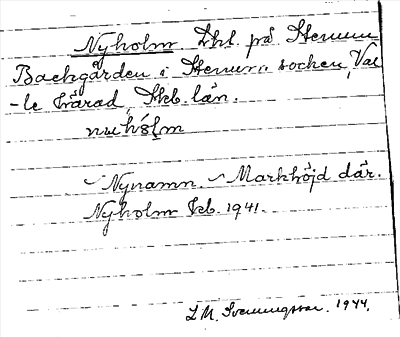 Nyholm Lht. på Stenum
Backgården i Stenum socken, Val
-le härad, Skb. län.
nyhólm
Nynamn. Markhöjd där.
Nyholm Jeb. 1941.
L.M. Svenungsson. 1944.